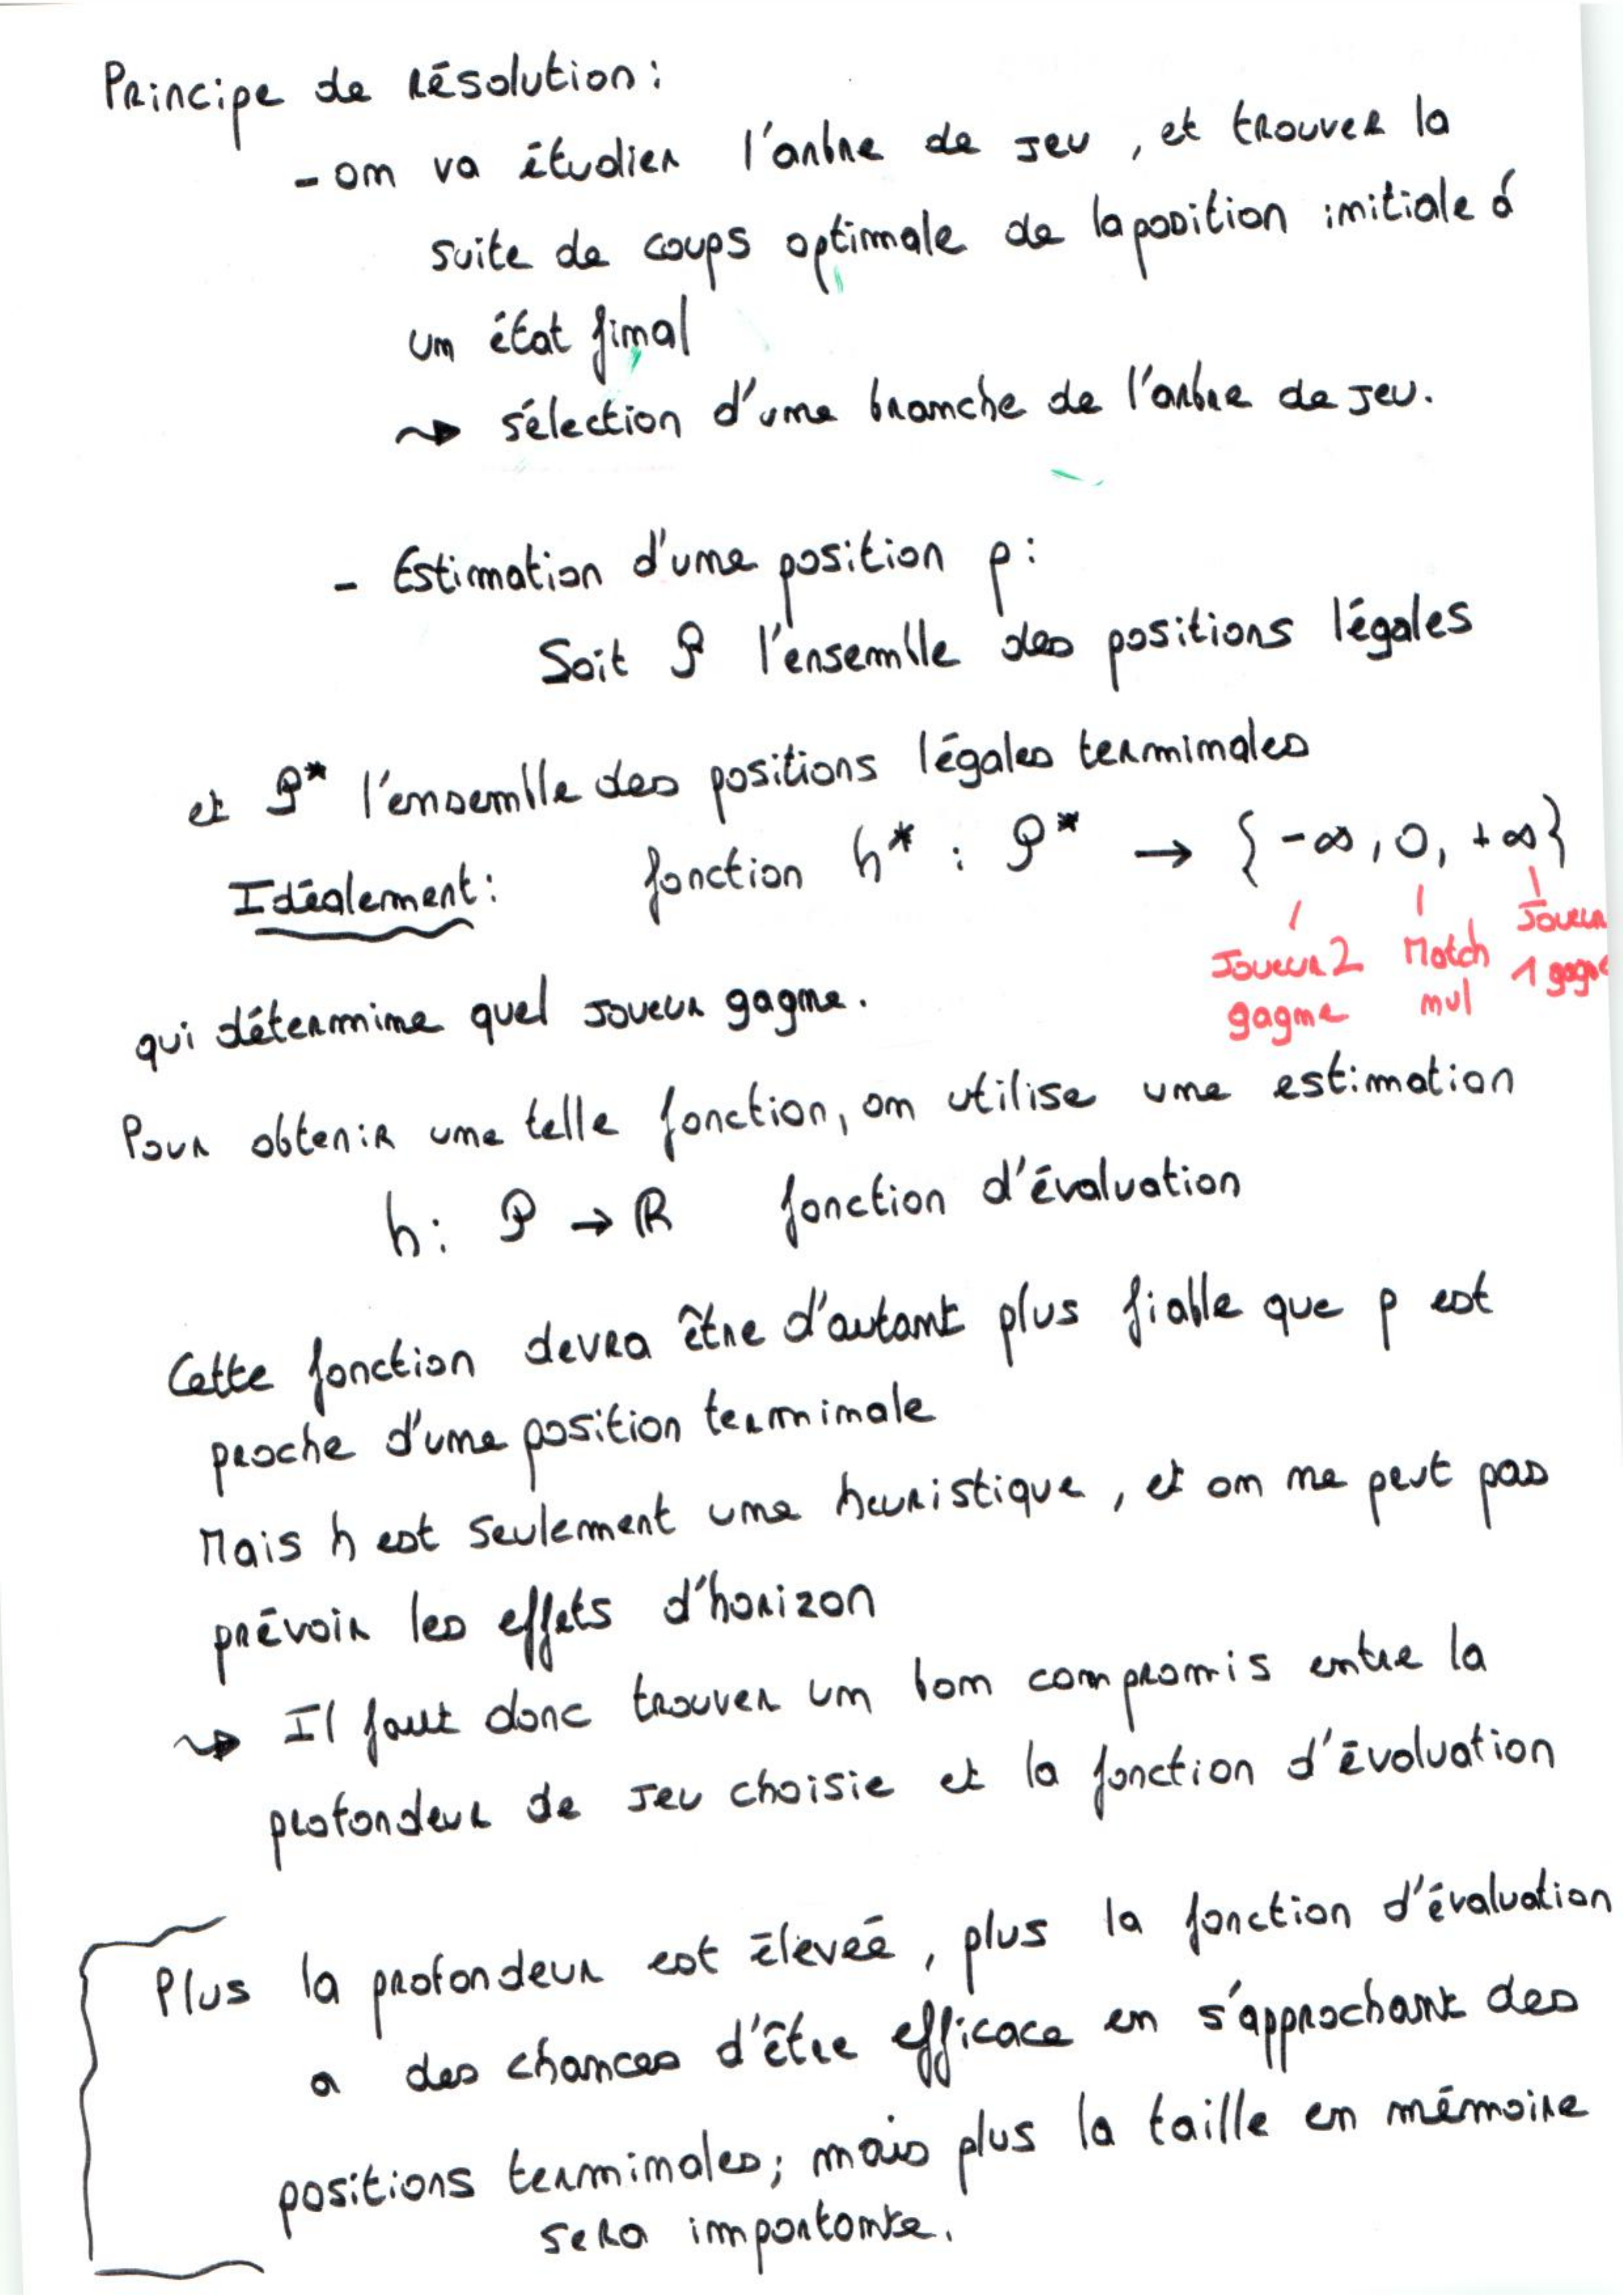 Principe de résolution :
- on va étudier l'arbre de jeu, et trouver la
suite de coups optimale de la position initiale à
un état final
⇝ sélection d'une branche de l'arbre de jeu.
- Estimation d'une position p :
Soit 𝒫 l'ensemble des positions légales
et 𝒫* l'ensemble des positions légales terminales
Idéalement : fonction h* : 𝒫* → {-∞, 0, +∞}
Joueur 2 gagne
Match nul
Joueur 1 gagne
qui détermine quel joueur gagne.
Pour obtenir une telle fonction, on utilise une estimation
h : 𝒫 → ℝ fonction d'évaluation
Cette fonction devra être d'autant plus fiable que p est
proche d'une position terminale
Mais h est seulement une heuristique, et on ne peut pas
prévoir les effets d'horizon
⇝ Il faut donc trouver un bon compromis entre la
profondeur de jeu choisie et la fonction d'évaluation
Plus la profondeur est élevée, plus la fonction d'évaluation
a des chances d'être efficace en s'approchant des
positions terminales ; mais plus la taille en mémoire
sera importante.